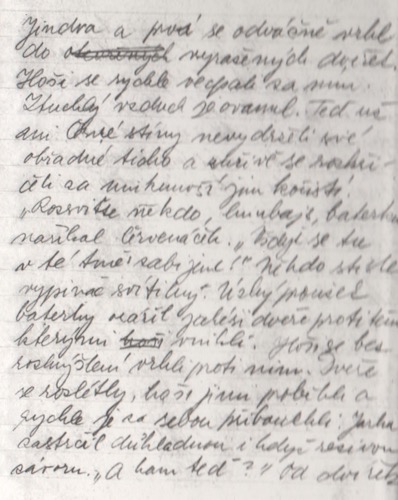 Jindra a prvá se odvážně vrhl
do vyražených dvířek.
Hoši se rychle vecpali za ním.
Ztuchlý vzduch je ovanul. Teď už
ani Černé stíny nevydržely své
obřadné ticho a zuřivě se rozkři-
čeli za unikaností jim kořistí.
„Rozsviťte někdo,
naříkal Červenáček. „Když se tu
v té tmě zabijem!" Někdo stiskl
vypínač svítilny. Úzký proužek
baterky ozářil jakési dveře proti těm
kterými vnikli. Hoši se bez
rozmýšlení vrhli proti nim. Dveře
se rozlétly, hoši jimi proběhli a
rychle je za sebou přibouchli. Jarka
zastrčil důkladnou i když rezivou
závoru. „A kam teď?" Od dvířek